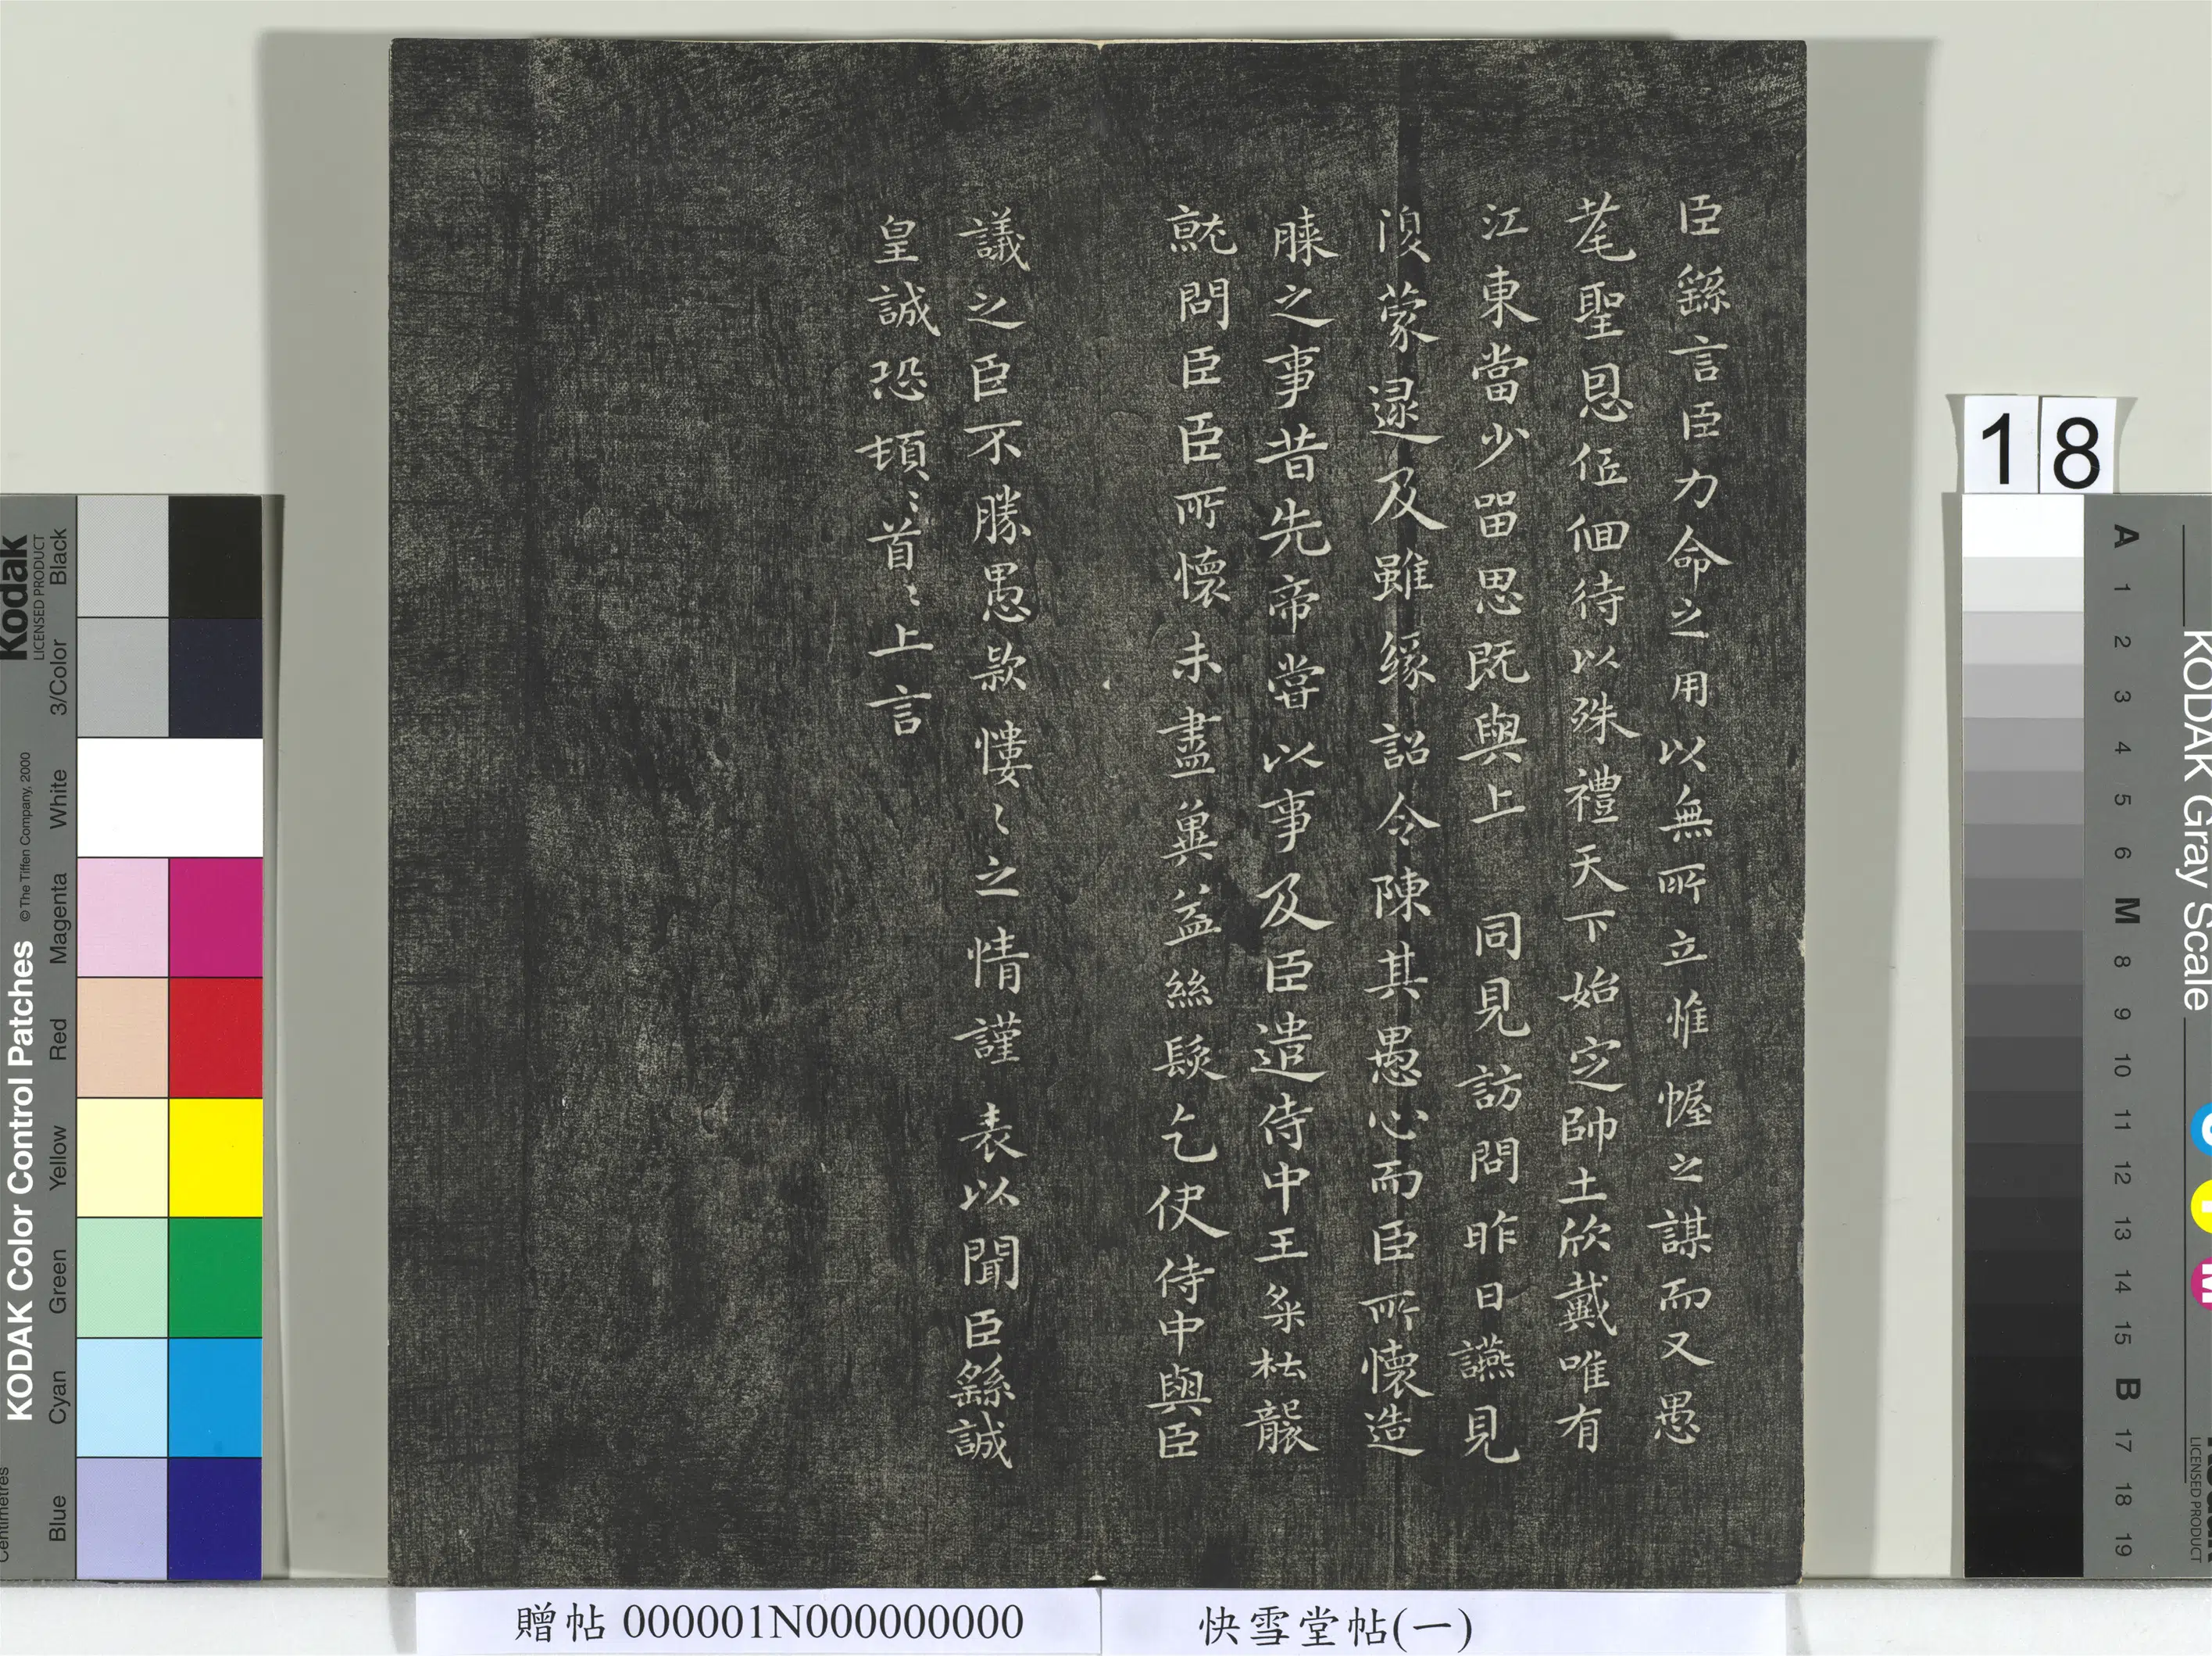 臣繇言臣力命之用以無所立惟幄之謀而又愚
耄聖恩伍佪待以殊禮天下始定帥土欣戴唯有
江東當少留思既與上 同見訪問昨日讌見
復蒙逮及雖緣詔令陳其愚心而臣所懷造
膝之事昔先帝嘗以事及臣遣侍中王粲杜襲
就問臣臣所懷未盡冀益絲髮乞使侍中與臣
議之臣不勝愚款悽〻之情謹 表以聞臣繇誠
皇誠恐頓〻首〻上言
18
贈帖 000001N000000000
快雪堂帖(一)
Kodak
LICENSED PRODUCT
KODAK Color Control Patches
© The Tiffen Company, 2000
Centimetres
Black
3/Color
White
Magenta
Red
Yellow
Green
Cyan
Blue
KODAK Gray Scale
A 1 2 3 4 5 6 M 8 9 10 11 12 13 14 15 B 17 18 19
C
Y
M
LICENSED PRODUCT